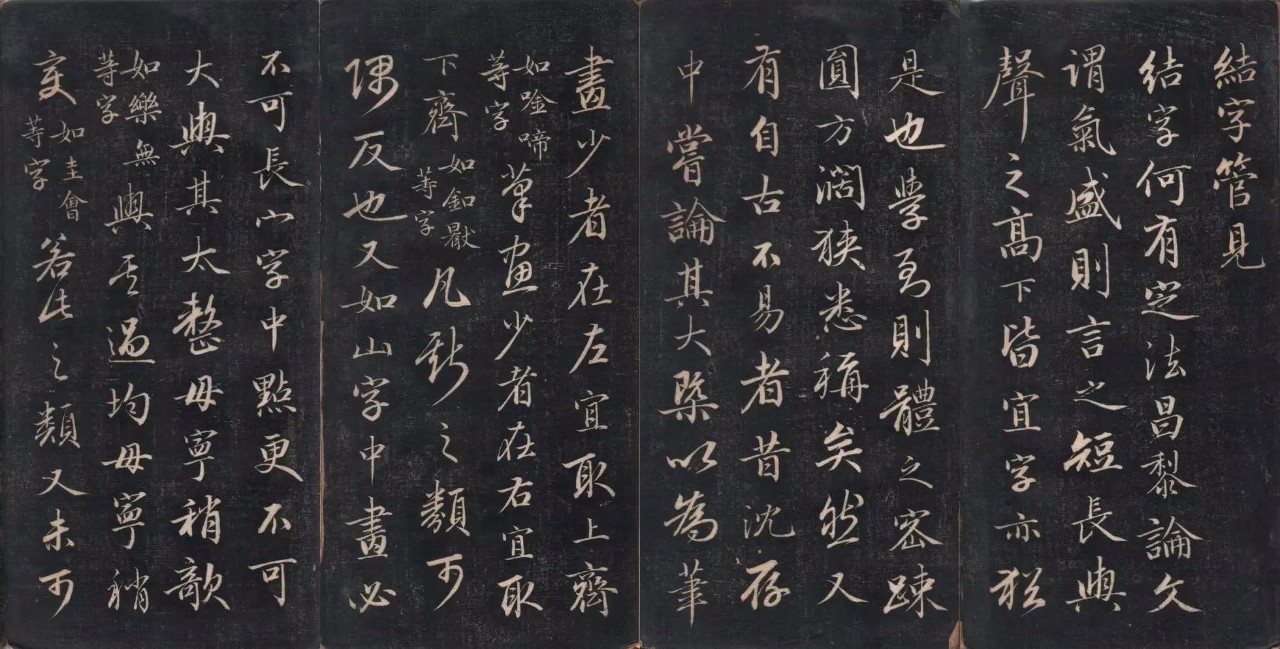 結字管見
結字何有定法昌黎論文
謂氣盛則言之短長與
聲之高下皆宜字亦猶
是也學至則體之密疎
圓方濶狹悉稱矣然又
有自古不易者昔沈存
中嘗論其大槩以為筆
畫少者在左宜取上齊
如唫啼等字筆畫少者在右宜取
下齊如釦等字凡斯之類可
隅反也又如山字中畫必
不可長心字中點更不可
大與其太整毋寧稍欹
如樂無等字與其過均毋寧稍
變如圭會等字若此之類又未可